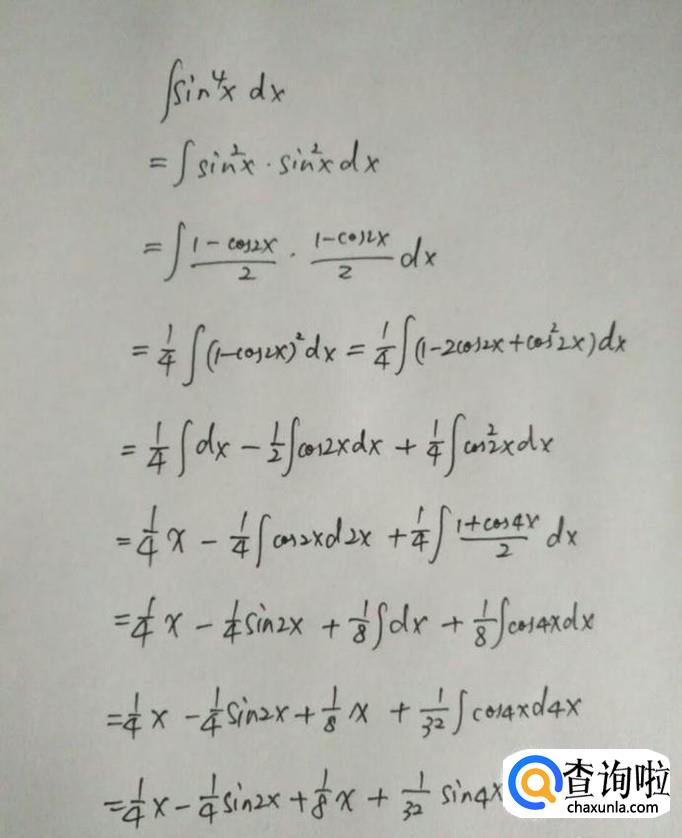 ∫sin⁴x dx
= ∫sin²x · sin²x dx
= ∫ (1-cos2x)/2 · (1-cos2x)/2 dx
= 1/4 ∫(1-cos2x)² dx = 1/4 ∫(1-2cos2x+cos²2x)dx
= 1/4 ∫dx - 1/2 ∫cos2xdx + 1/4 ∫cos²2xdx
= 1/4 x - 1/4 ∫cos2xd2x + 1/4 ∫ (1+cos4x)/2 dx
= 1/4 x - 1/4 sin2x + 1/8 ∫dx + 1/8 ∫cos4xdx
= 1/4 x - 1/4 sin2x + 1/8 x + 1/32 ∫cos4xd4x
= 1/4 x - 1/4 sin2x + 1/8 x + 1/32 sin4x
查询啦
chaxunla.com